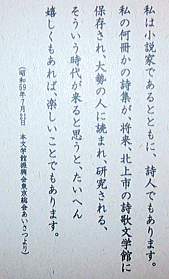 私は小説家であるとともに、詩人でもあります。
私の何冊かの詩集が、将来、北上市の詩歌文学館に
保存され、大勢の人に読まれ、研究される、
そういう時代が来ると思うと、たいへん
嬉しくもあれば、楽しいことでもあります。
（昭和59年7月21日　本文学館振興会東京総会あいさつより）